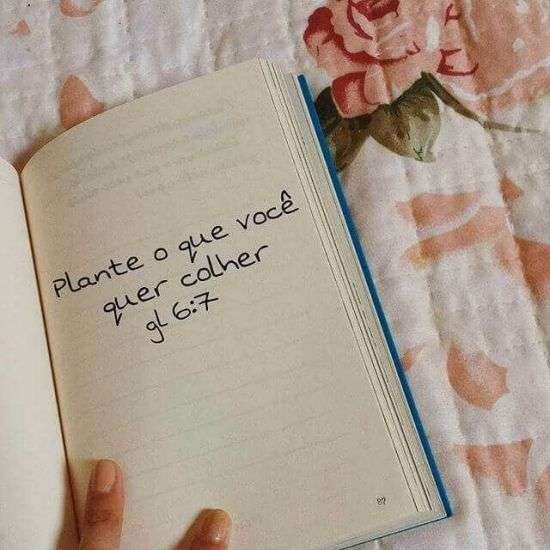 Plante o que você
quer colher
gl 6:7
87